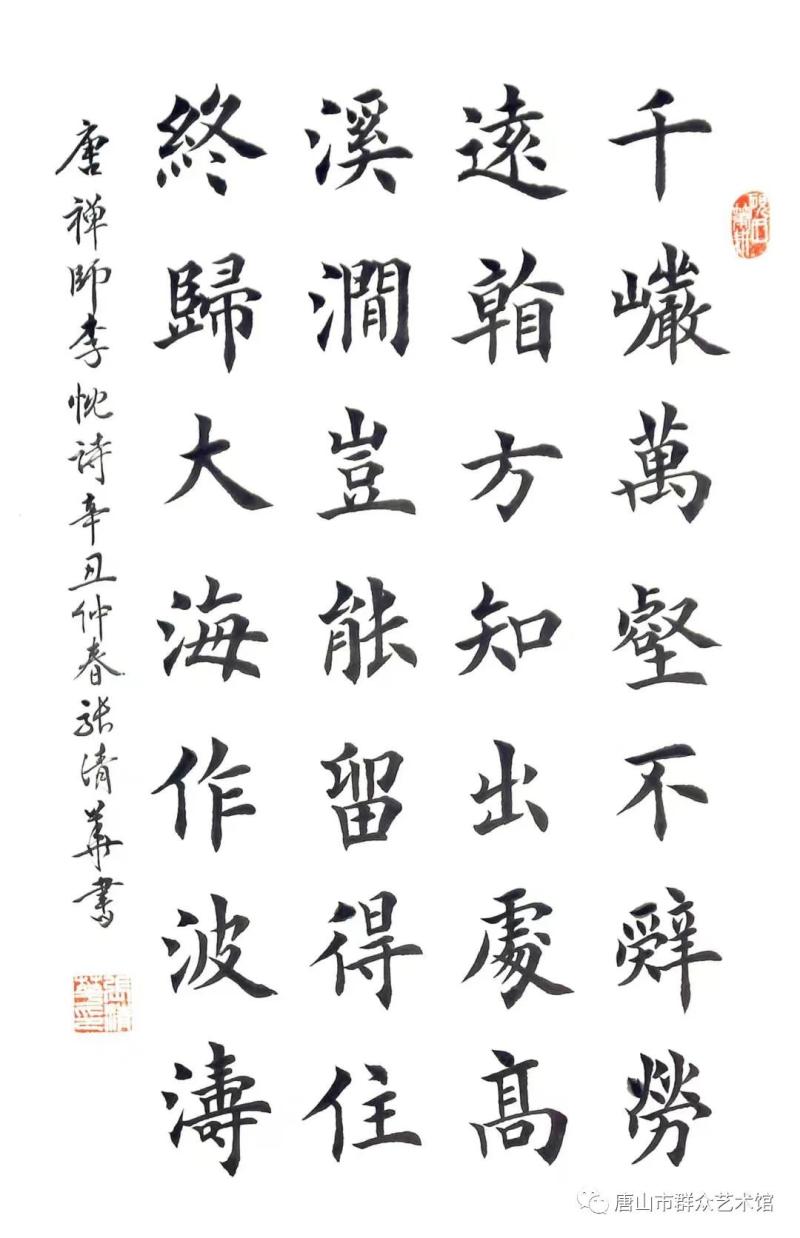 千巗萬壑不辭勞
遠看方知出處高
溪澗豈能留得住
終歸大海作波濤
唐禅師李忱詩辛丑仲春張清華書
張清華印
唐山市群众艺术馆